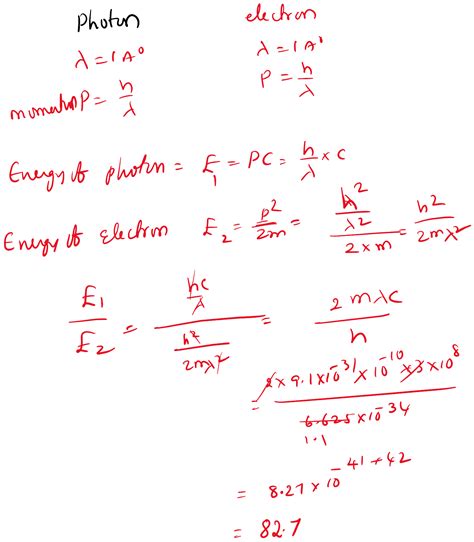 Photon electron
λ = 1 A° λ = 1 A°
momentum P = h/λ P = h/λ
Energy of photon = E₁ = PC = h/λ × C
Energy of electron E₂ = p²/2m = (h²/λ²)/(2 × m) = h²/2mλ²
E₁/E₂ = (hc/λ)/(h²/2mλ²) = 2mλc/h
= 2 × 9.1 × 10⁻³¹ × 10⁻¹⁰ × 3 × 10⁸ / 6.625 × 10⁻³⁴
1.1
= 8.27 × 10^(-41+42)
= 82.7